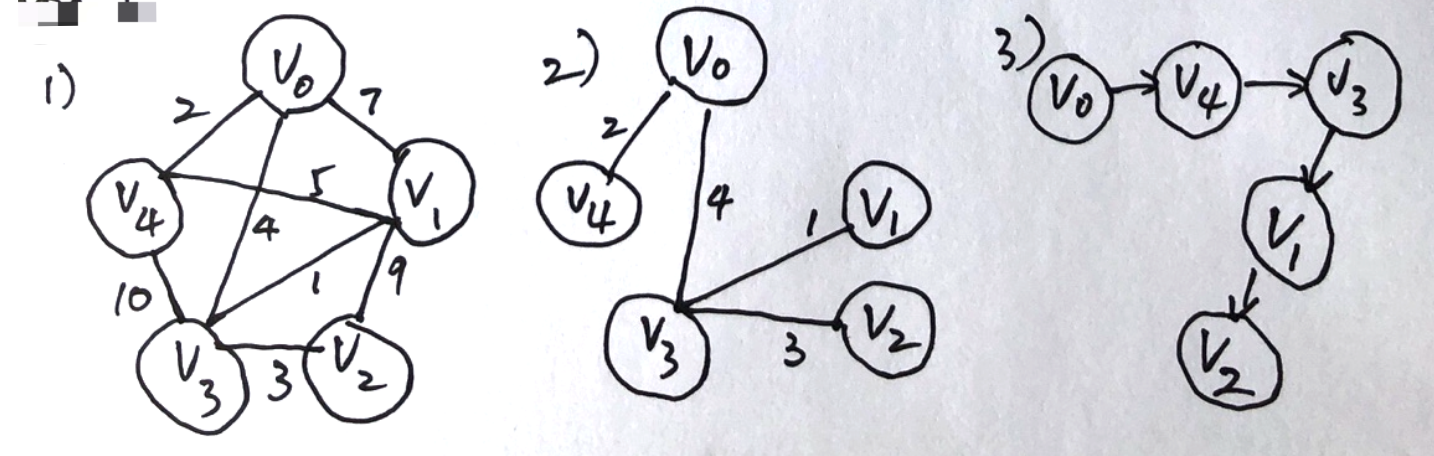 1)
V0
2
7
V4
5
V1
4
10
1
9
V3
3
V2
2)
V0
2
V4
4
1
V1
V3
3
V2
3)
V0
V4
V3
V1
V2